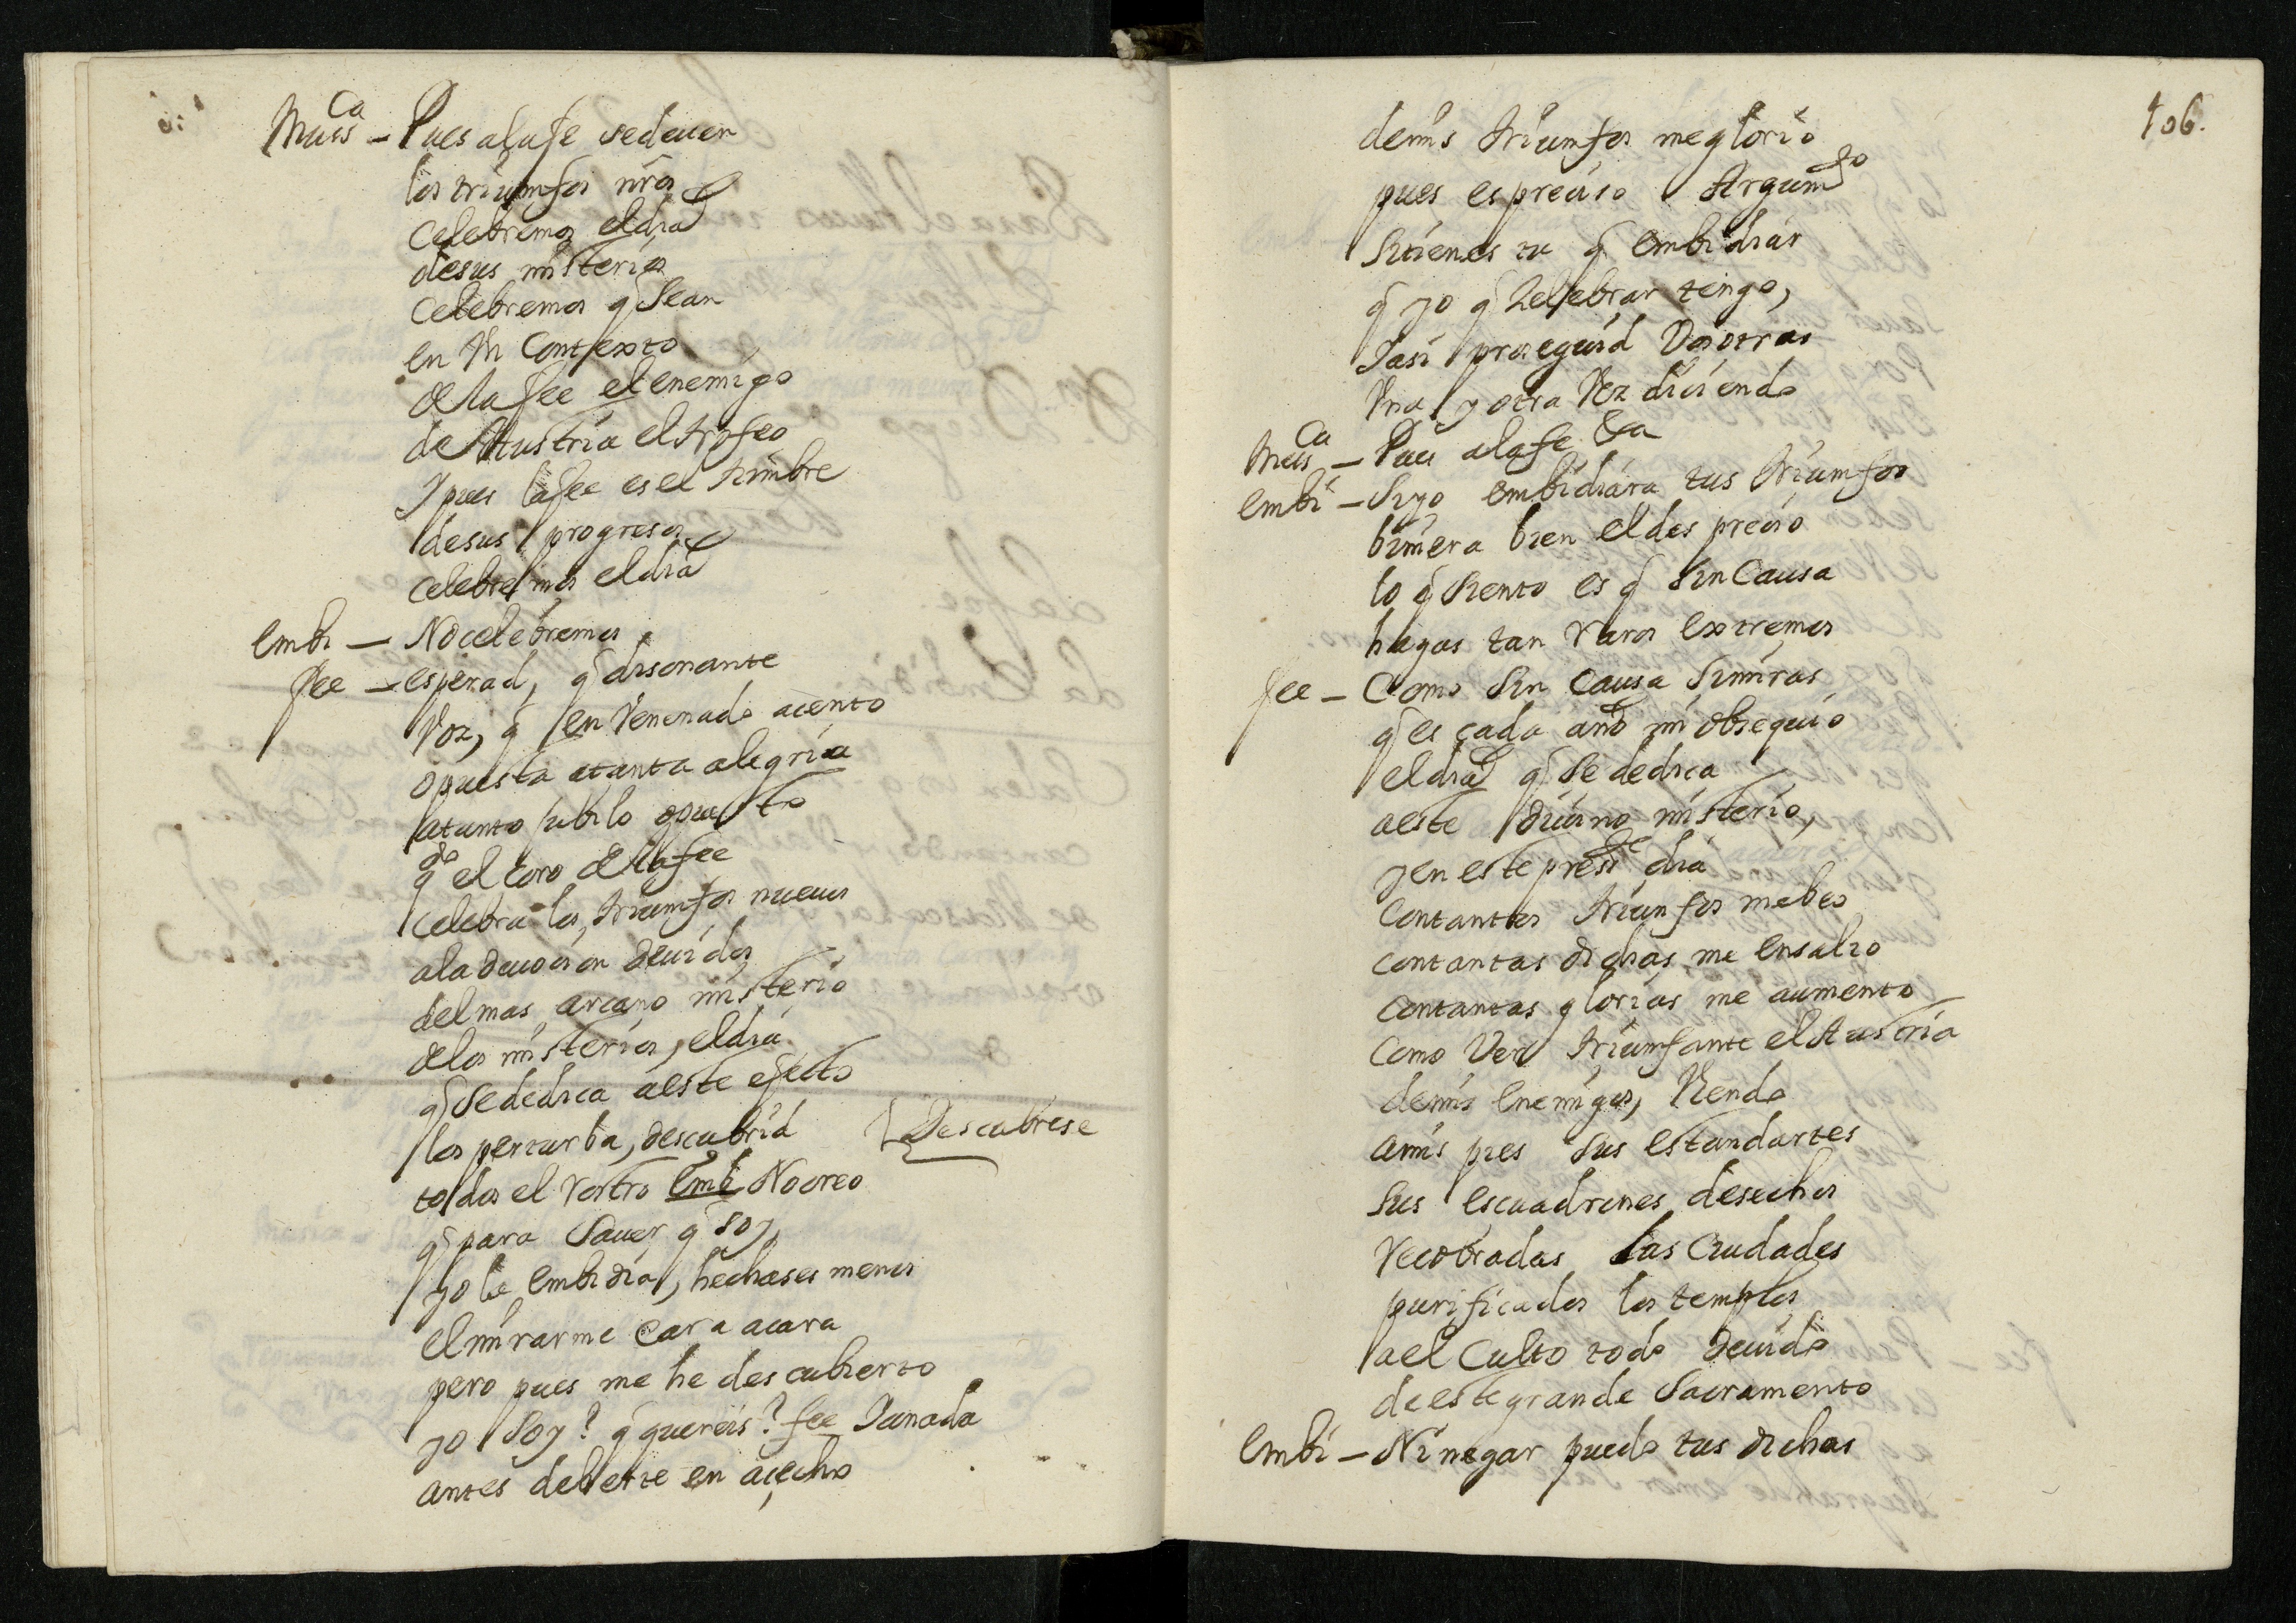 Musi^ca – Pues ala fe sedeuen
los triumfos nr̃os
Celebremos el dia
desus misterios
Celebremos q̃ Sean
en Vn Contexto
dela fee el enemigo
de Austria el trofeo
Y pues la fee es el timbre
desus progresos
celebremos el dia
embi – No celebremos
fee – esperad, q̃ disonante
Voz, q̃ en Venenado acento
opuesta atanta alegria
atanto jubilo opuesto
q^do el Coro dela fee
celebra los triumfos nueuos
ala deuocion deuidos
del mas arcano misterio
delos misterios, el dia
q̃ Se dedica aeste efecto
los perturba, descubrid { Descubrese
todos el rostro Embi No creo
q̃ para Sauer q̃ Soy
yo la embidia, hechases menos
el mirarme Cara acara
pero pues me he descubierto
yo Soy? q̃ quereis? fee Ya nada
antes deberte en acecho
106.
demis triumfos me glorio
pues es preciso Argum^to
Si tienes tu q̃ embidiar
q̃ yo q̃ Zelebrar tengo,
Yasi proseguid Vosotras
Vna y otra Vez diciendo
Musi^ca – Pues alafe &a
embi – Si yo embidiara tus triumfos
biniera bien el desprecio
lo q̃ Siento es q̃ Sin Causa
hagas tan raros extremos
fee – Como Sin Causa Simiras
q̃ es cada año mi obsequio
el dia q̃ Se dedica
aeste diuino misterio,
y en este pres^te dia
Contantos triunfos mebeo
contantas dichas me ensalzo
contantas glorias me aumento
Como Ver triumfante el Austria
demis enemigos, Viendo
amis pies Sus estandartes
Sus escuadrones desechos
recobradas las Ciudades
purificados los templos
ael Culto todo deuido
de este grande Sacramento
embi – Ni negar puedo tus dichas